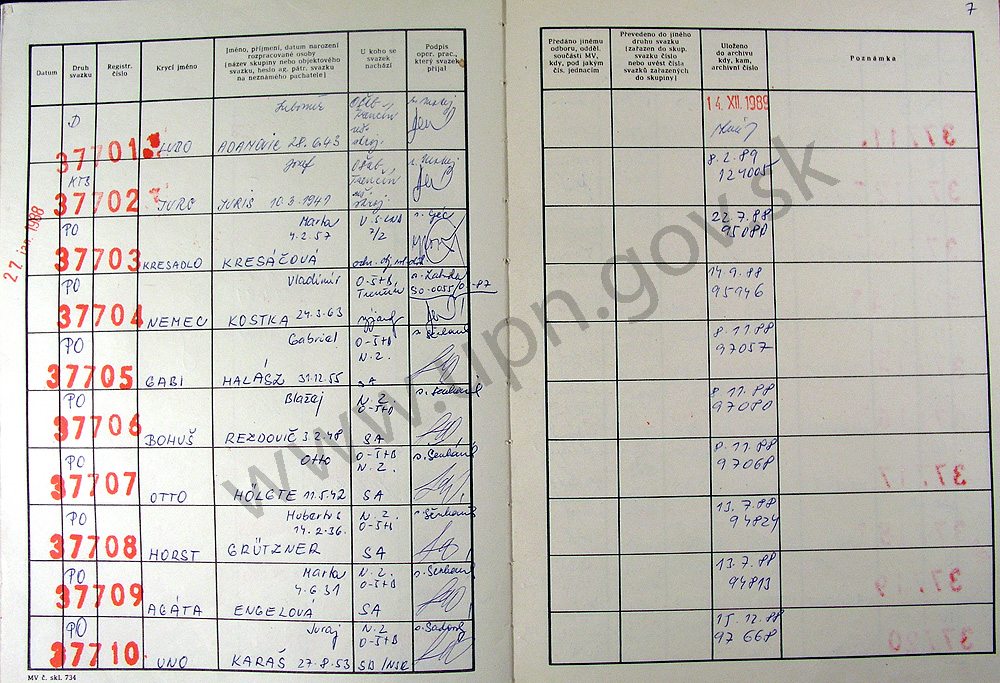 7
Datum
Druh svazku
Registr. číslo
Krycí jméno
Jméno, příjmení, datum narození
rozpracované osoby
(název skupiny nebo objektového
svazku, heslo ag. pátr. svazku
na neznámého pachatele)
U koho se
svazek
nachází
Podpis
oper. prac.,
který svazek
přijal
Předáno jinému
odboru, odděl.
součásti MV,
kdy, pod jakým
čís. jednacím
Převedeno do jiného
druhu svazku
(zařazen do skup.
svazku číslo
nebo uvést čísla
svazků zařazených
do skupiny)
Uloženo
do archivu
kdy, kam,
archivní číslo
Poznámka
27 jan. 1988
D
Ľubomír
37701 ĽUBO ADAMOVIE 28.6.43
Trenčín
14. XII. 1989
KTS
Jozef
37702 JURO JURIS 10.3.1941
Trenčín
8.2.89
124005
PO
Marta
4.2.57
37703 KRESADLO KRESÁČOVÁ
22.7.88
95080
PO
Vladimír
37704 NEMEC KOSTKA 24.3.63
O-ŠtB,
Trenčín
SO-0055/0-87
14.9.88
95946
PO
Gabriel
37705 GABI HALÁSZ 31.12.55
O-ŠtB
N.2.
SA
8.11.88
97057
PO
Blažaj
37706 BOHUŠ REZDOVIČ 3.2.48
N.2.
O-ŠtB
SA
8.11.88
97080
PO
Otto
37707 OTTO HÖLGTE 11.5.42
O-ŠtB
N.2.
SA
8.11.88
97068
PO
Hubertus
14.2.36.
37708 HORST GRÜTZNER
N.2.
O-ŠtB
SA
13.7.88
94824
PO
Marta
4.6.31
37709 AGÁTA ENGELOVÁ
N.2.
O-ŠtB
SA
13.7.88
94813
PO
Juraj
37710 UNO KARÁŠ 27.8.53
N.2
O-ŠtB
SB/NSR
15.12.88
97668
MV č. skl. 734
www.upn.gov.sk